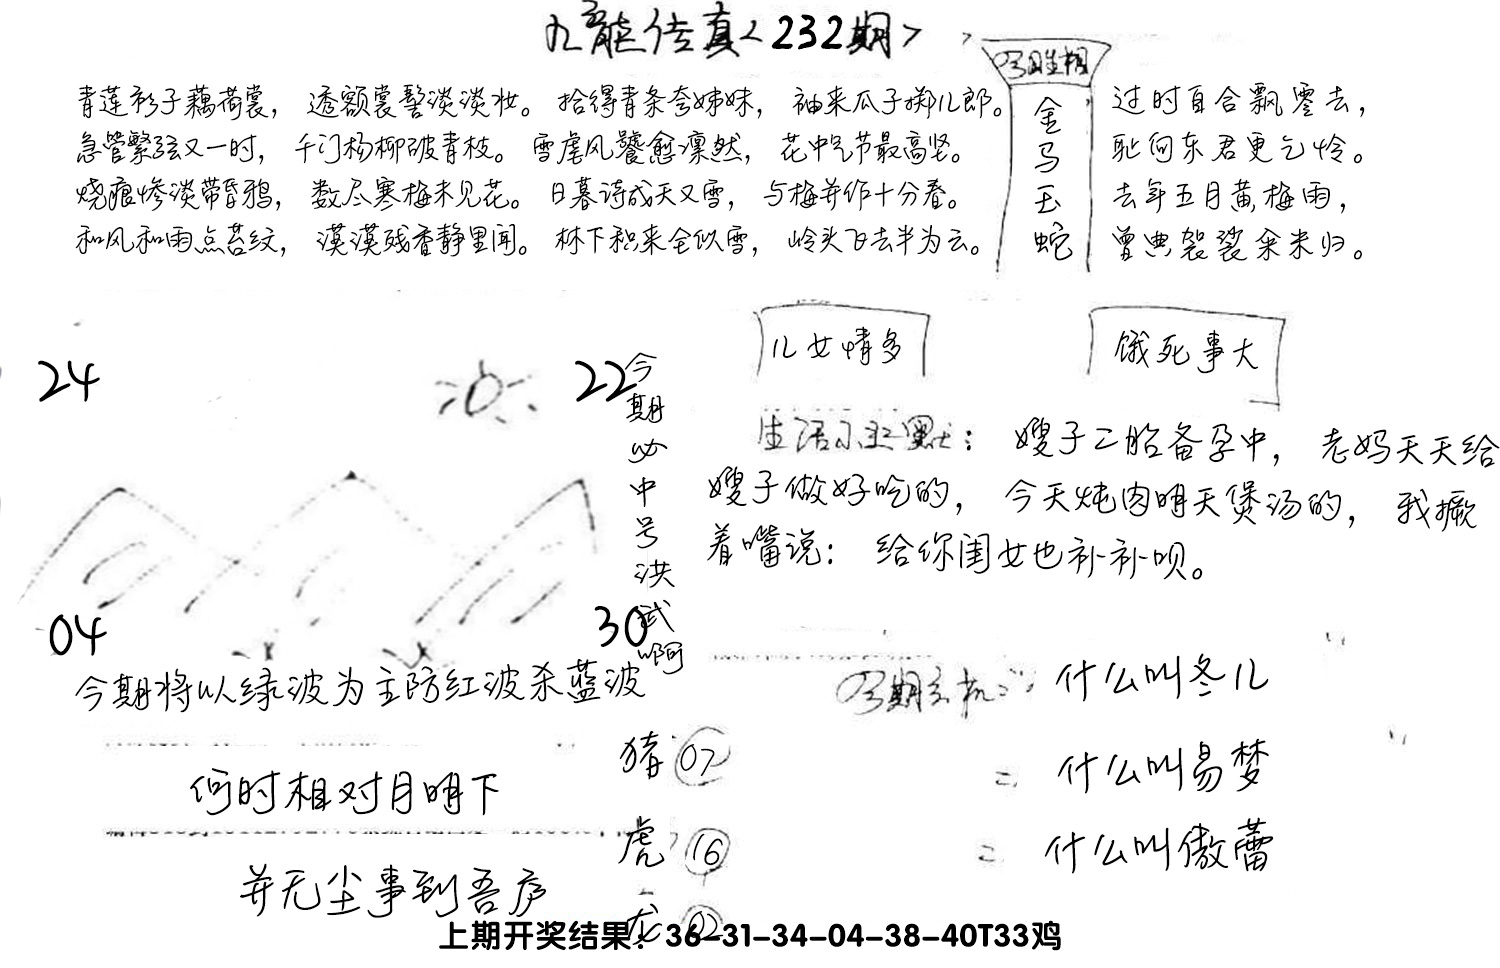 九龙传真<232期>
今日生相
金马玉蛇
青莲衫子藕荷裳，透额裳髻淡淡妆。拾得青条夸姊妹，袖来瓜子掷儿郎。
急管繁弦又一时，千门杨柳破青枝。雪虐风饕愈凛然，花中气节最高坚。
烧痕惨淡带昏鸦，数尽寒梅未见花。日暮诗成天又雪，与梅并作十分春。
和风和雨点苔纹，漠漠残香静里闻。林下积来全似雪，岭头飞去半为云。
过时自合飘零去，
耻向东君更乞怜。
去年五月黄梅雨，
曾典袈裟籴米归。
24
22
04
30
今期必中号洪武啊
今期将以绿波为主防红波杀蓝波
儿女情多
饿死事大
生活小幽默：嫂子二胎备孕中，老妈天天给
嫂子做好吃的，今天炖肉明天煲汤的，我撅
着嘴说：给你闺女也补补呗。
今期玄机：什么叫冬儿
= 什么叫易梦
= 什么叫傲蕾
何时相对月明下
并无尘事到吾庐
猪 07
虎 16
龙 02
上期开奖结果：36-31-34-04-38-40T33鸡